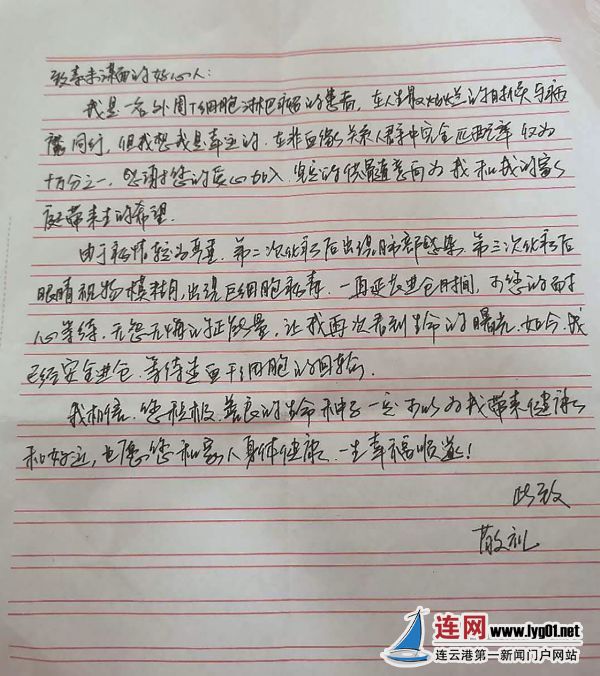 致素未谋面的好心人：
我是一名外周T细胞淋巴瘤的患者，在人生最灿烂的时候与病
魔同行，但我想我是幸运的，在非血缘关系人群中完全匹配概率仅为
十万分之一，感谢您的爱心加入，坚定的供髓意向为我和我的家
庭带来生的希望。
由于病情较为严重，第二次化疗后出现肺部感染，第三次化疗后
眼睛视物模糊，出现巨细胞病毒，一直延长进仓时间，而您的耐
心等待，无怨无悔的正能量，让我再次看到生命的曙光，如今，我
已经安全进仓，等待造血干细胞的回输。
我相信，您积极、善良的生命种子一定可以为我带来健康
和好运，也愿您和家人身体健康，一生幸福顺遂！
此致
敬礼
连网 www.lyg01.net
连云港第一新闻门户网站